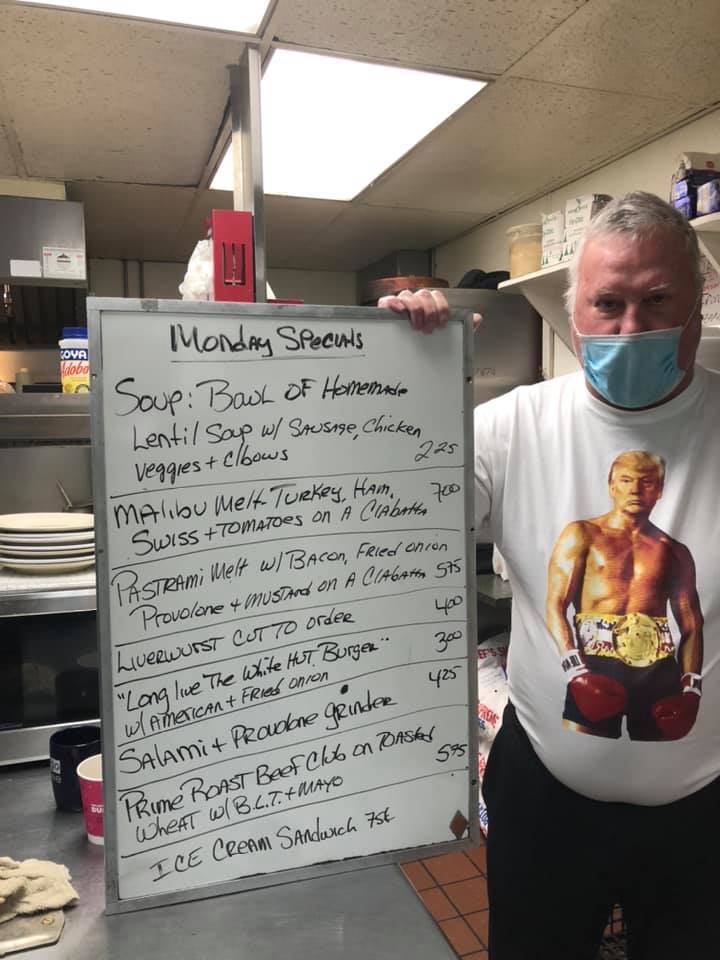 Monday Specials
Soup: Bowl OF Homemade
Lentil Soup w/ Sausage, Chicken
veggies + elbows 225
Malibu Melt - Turkey, Ham, 700
Swiss + Tomatoes on A Ciabatta
Pastrami Melt w/ Bacon, Fried onion
Provolone + mustard on A Ciabatta 575
Liverwurst cut to order 400
"Long live The White Hut Burger" 300
w/ American + Fried onion
Salami + Provolone grinder 425
Prime Roast Beef Club on Toasted
wheat w/ B.L.T. + mayo 595
ICE Cream Sandwich 75¢
GOYA
Adobo